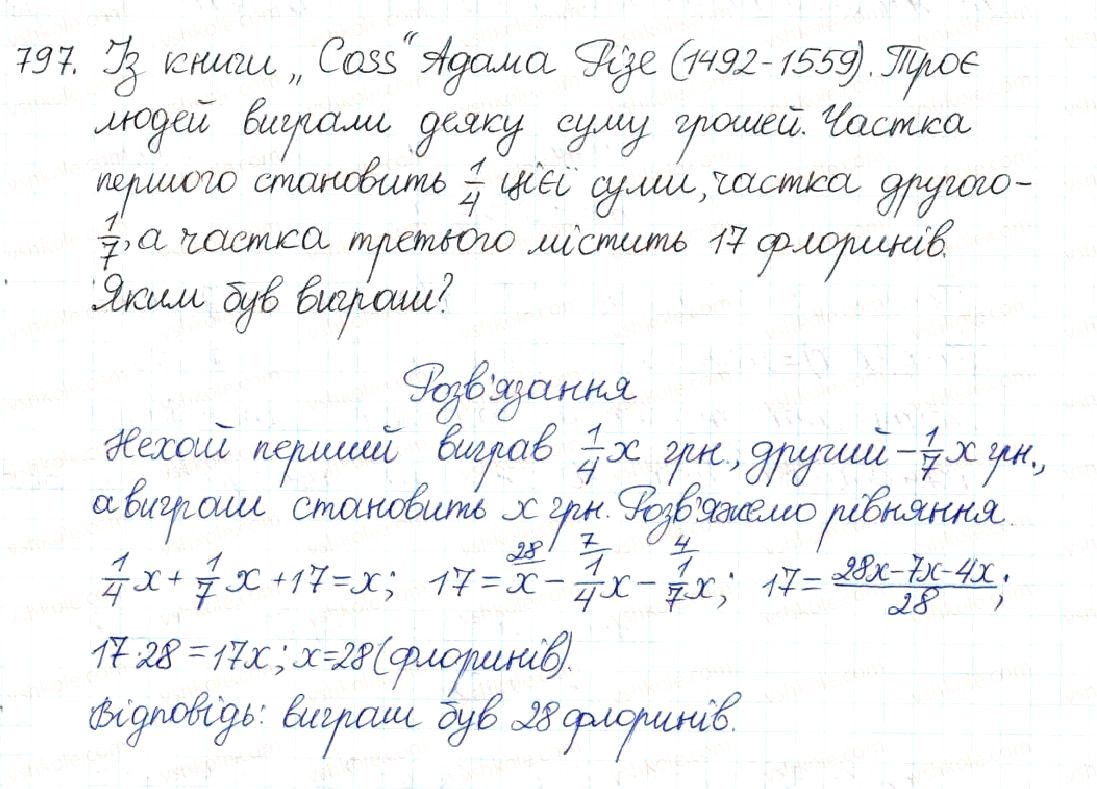 797. Із книги „Coss" Адама Різе (1492-1559). Троє
людей виграли деяку суму грошей. Частка
першого становить 1/4 цієї суми, частка другого -
1/7, а частка третього містить 17 флоринів.
Яким був виграш?
Розв'язання
Нехай перший виграв 1/4 x грн., другий - 1/7 x грн.,
а виграш становить x грн. Розв'яжемо рівняння
1/4 x + 1/7 x + 17 = x; 17 = x^28 - 1/4^7 x - 1/7^4 x; 17 = (28x-7x-4x)/28;
17·28 = 17x; x=28 (флоринів).
Відповідь: виграш був 28 флоринів.